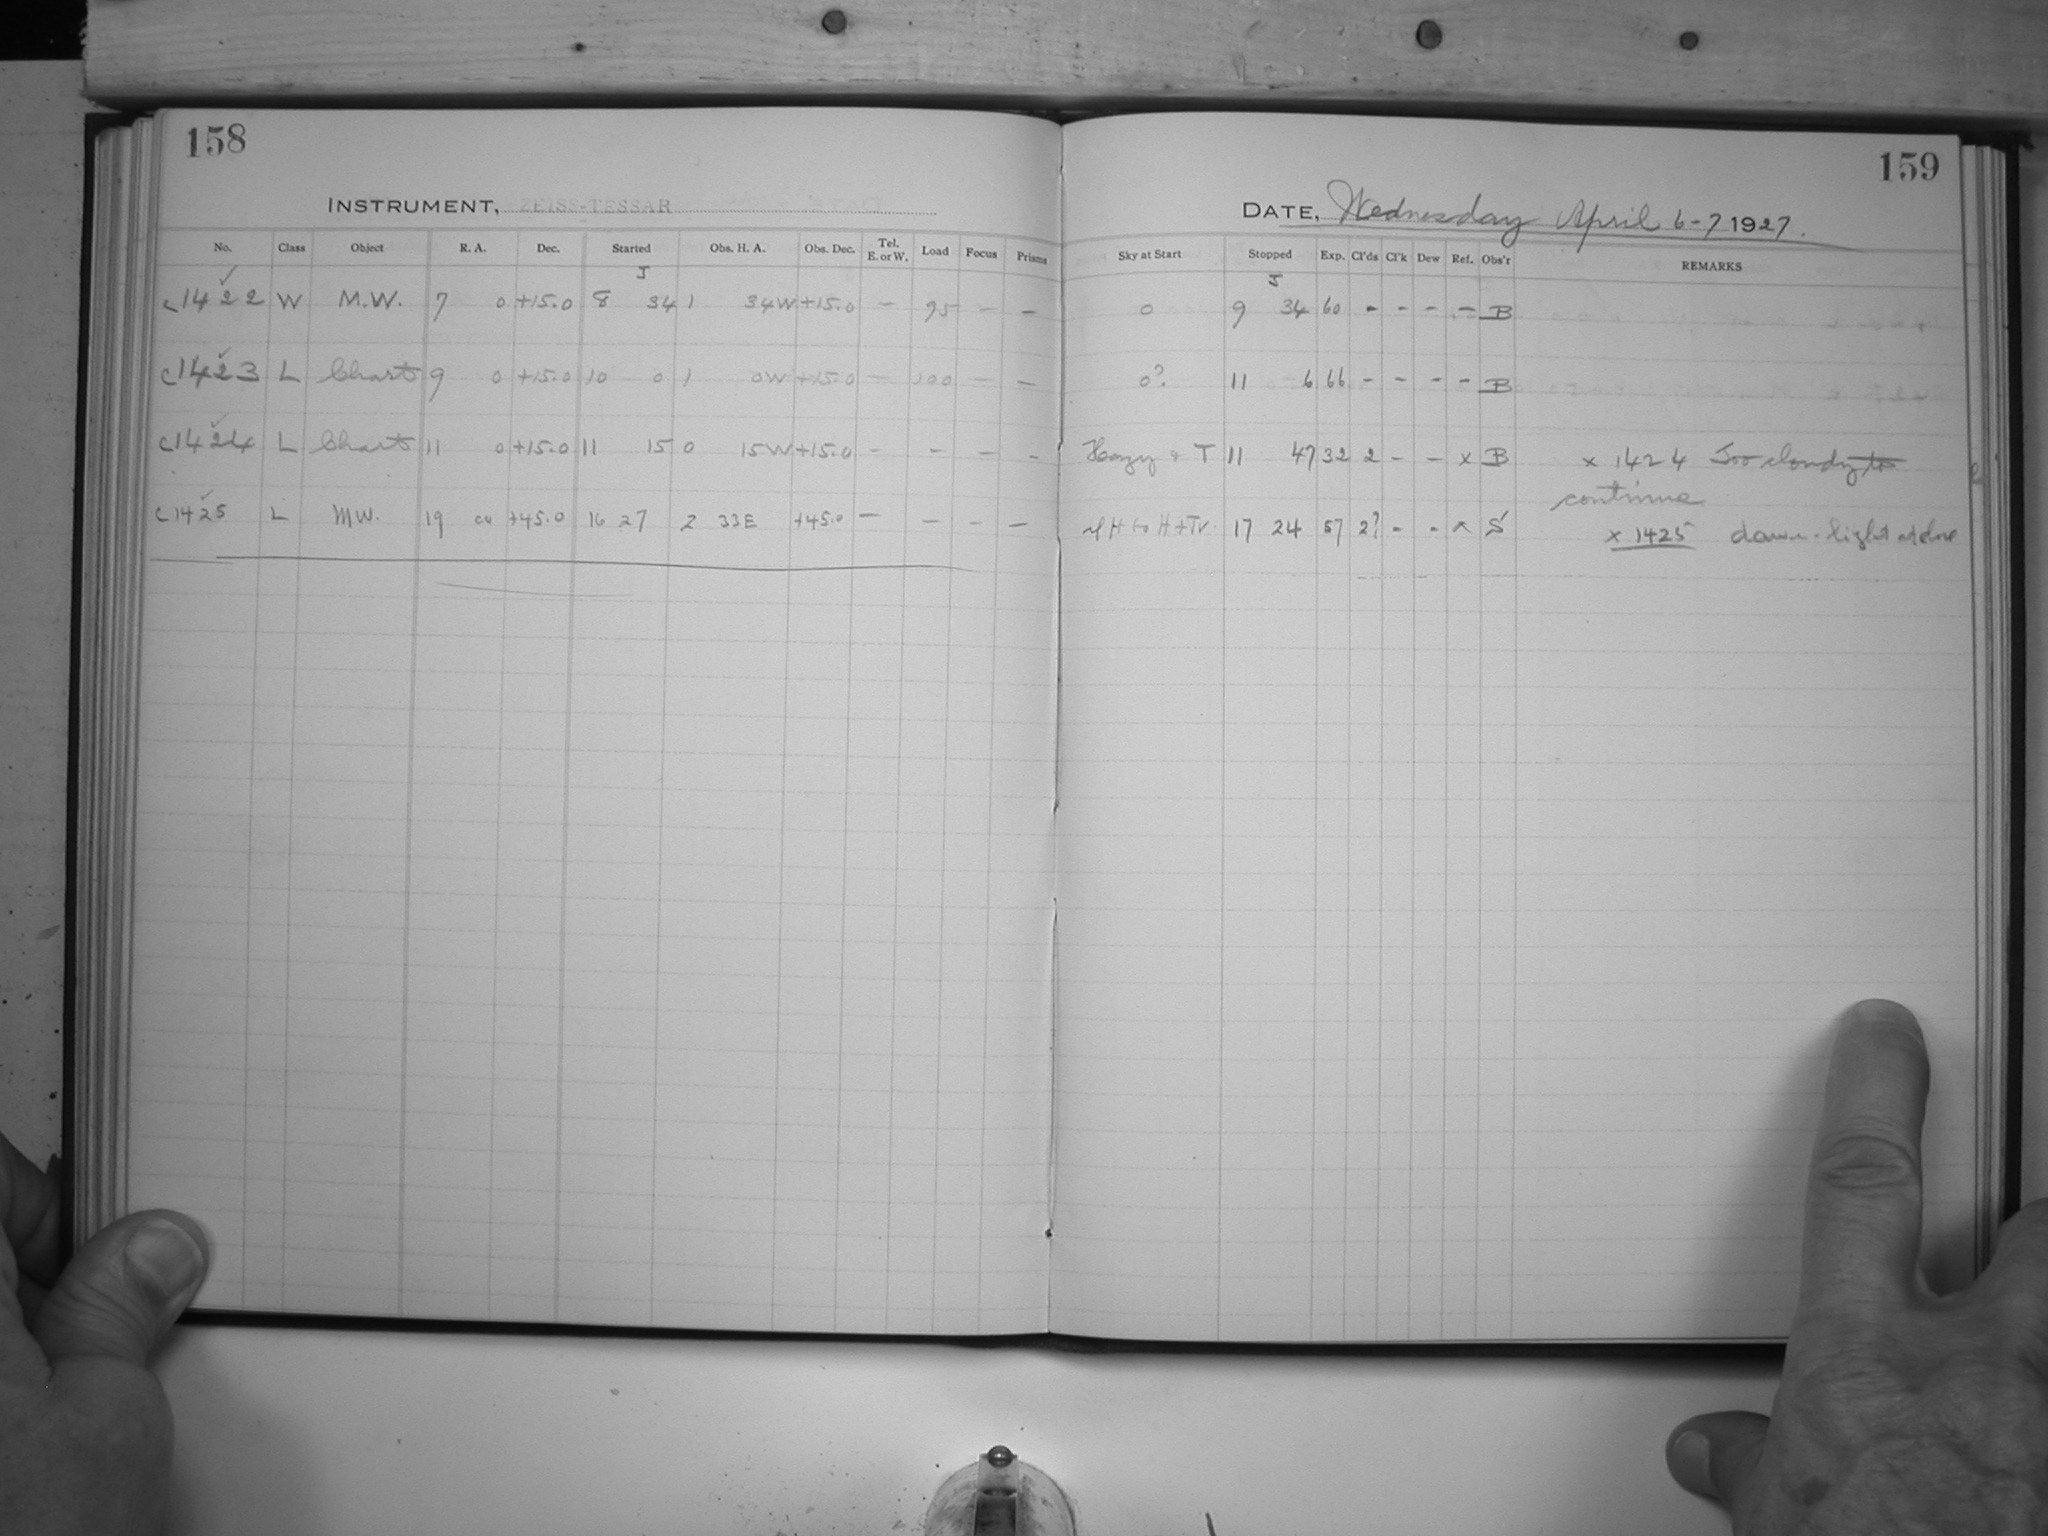 158
INSTRUMENT, ZEISS-TESSAR
No. Class Object R. A. Dec. Started Obs. H. A. Obs. Dec. Tel. E. or W. Load Focus Prisms
J
c1422 W M.W. 7 0 +15.0 8 34 1 34W +15.0 – 95 – –
c1423 L Chart 9 0 +15.0 10 0 1 0W +15.0 – 100 – –
c1424 L Chart 11 0 +15.0 11 15 0 15W +15.0 – – – –
c1425 L MW. 19 00 +45.0 16 27 2 33E +45.0 – – – –
159
DATE, Wednesday April 6-7 1927.
Sky at Start Stopped Exp. Cl'ds Cl'k Dew Ref. Obs'r REMARKS
J
0 9 34 60 – – – – B
0? 11 6 66 – – – – B
Hazy + T 11 47 32 2 – – x B x 1424 Too cloudy to
continue
H to H+Tr. 17 24 57 2? – – x S x 1425 dawn-light at